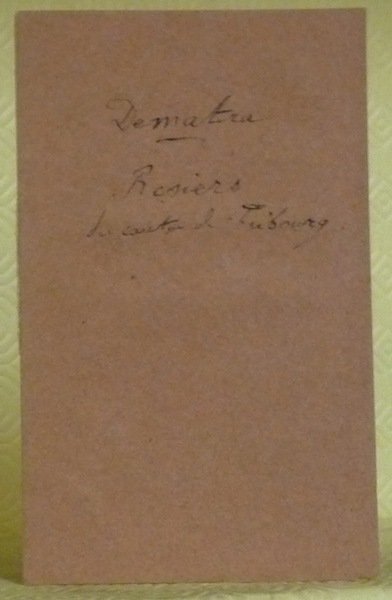 Dematra
Rosiers
du canton de Fribourg